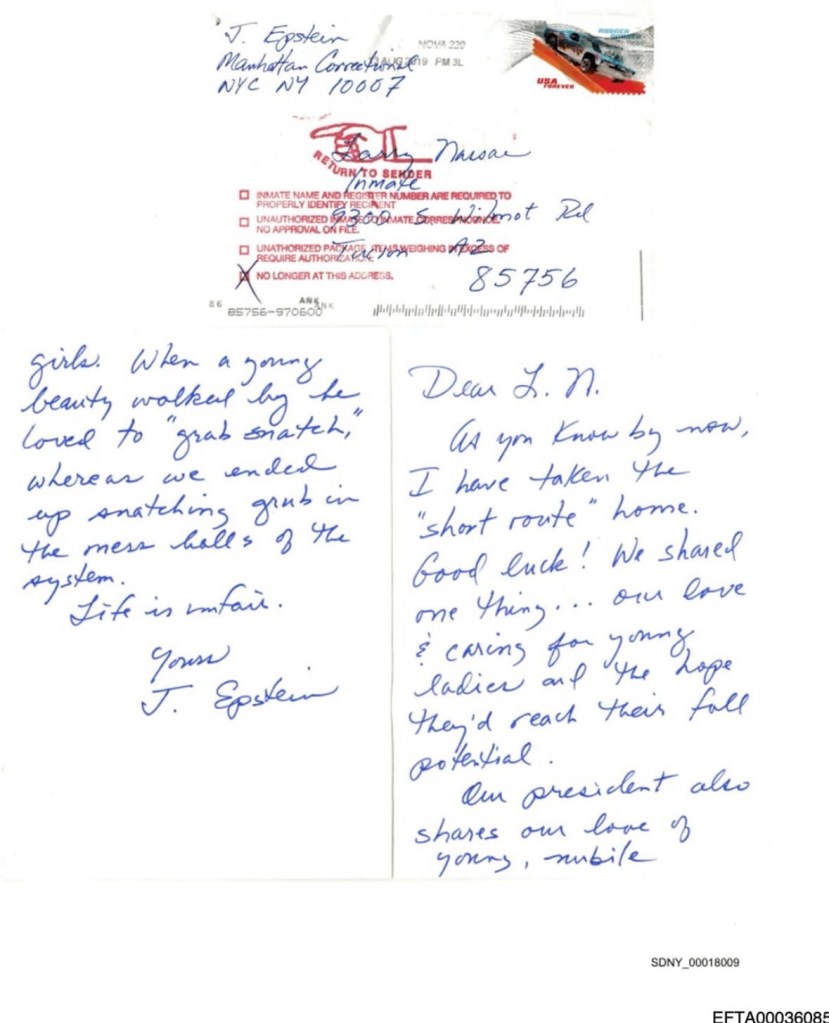 J. Epstein
Manhattan Correctional
NYC NY 10007
NOVA 220
AUG 2019 PM 3L
USA
FOREVER
Larry Nassar
RETURN TO SENDER
Inmate
INMATE NAME AND REGISTER NUMBER ARE REQUIRED TO
PROPERLY IDENTIFY RECIPIENT
9300 S. Wilmot Rd
UNAUTHORIZED INMATE TO INMATE CORRESPONDENCE.
NO APPROVAL ON FILE.
Tucson AZ
UNATHORIZED PACKAGE. ITEMS WEIGHING IN EXCESS OF
REQUIRE AUTHORIZATION.
85756
NO LONGER AT THIS ADDRESS.
86
ANK
ANK
85756-970600
Dear L. N.
As you know by now,
I have taken the
"short route" home.
Good luck! We shared
one thing... our love
& caring for young
ladies and the hope
they'd reach their full
potential.
Our president also
shares our love of
young, nubile
girls. When a young
beauty walked by he
loved to "grab snatch,"
whereas we ended
up snatching grub in
the mess halls of the
system.
Life is unfair.
Yours
J. Epstein
SDNY_00018009
EFTA00036085